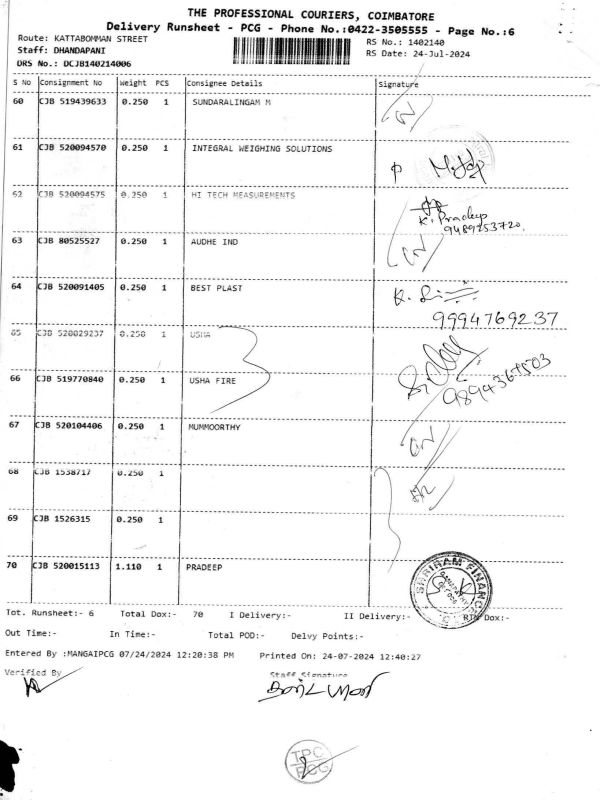 THE PROFESSIONAL COURIERS, COIMBATORE
Delivery Runsheet - PCG - Phone No.:0422-3505555 - Page No.:6
Route: KATTABOMMAN STREET
RS No.: 1402140
Staff: DHANDAPANI
RS Date: 24-Jul-2024
DRS No.: DCJB140214006
S No Consignment No Weight PCS Consignee Details Signature
60 CJB 519439633 0.250 1 SUNDARALINGAM M
61 CJB 520094570 0.250 1 INTEGRAL WEIGHING SOLUTIONS
62 CJB 520094575 0.250 1 HI TECH MEASUREMENTS
K. Pradeep
9489253720.
63 CJB 80525527 0.250 1 AUDHE IND
64 CJB 520091405 0.250 1 BEST PLAST
9994769237
65 CJB 520029237 0.250 1 USHA
66 CJB 519770840 0.250 1 USHA FIRE
9894367503
67 CJB 520104406 0.250 1 MUMMOORTHY
68 CJB 1538717 0.250 1
69 CJB 1526315 0.250 1
70 CJB 520015113 1.110 1 PRADEEP
SHRIRAM FINANC
Tot. Runsheet:- 6 Total Dox:- 70 I Delivery:- II Delivery:- RTN Dox:-
Out Time:- In Time:- Total POD:- Delvy Points:-
Entered By :MANGAIPCG 07/24/2024 12:20:38 PM Printed On: 24-07-2024 12:40:27
Verified By Staff Signature
TPC
PCG